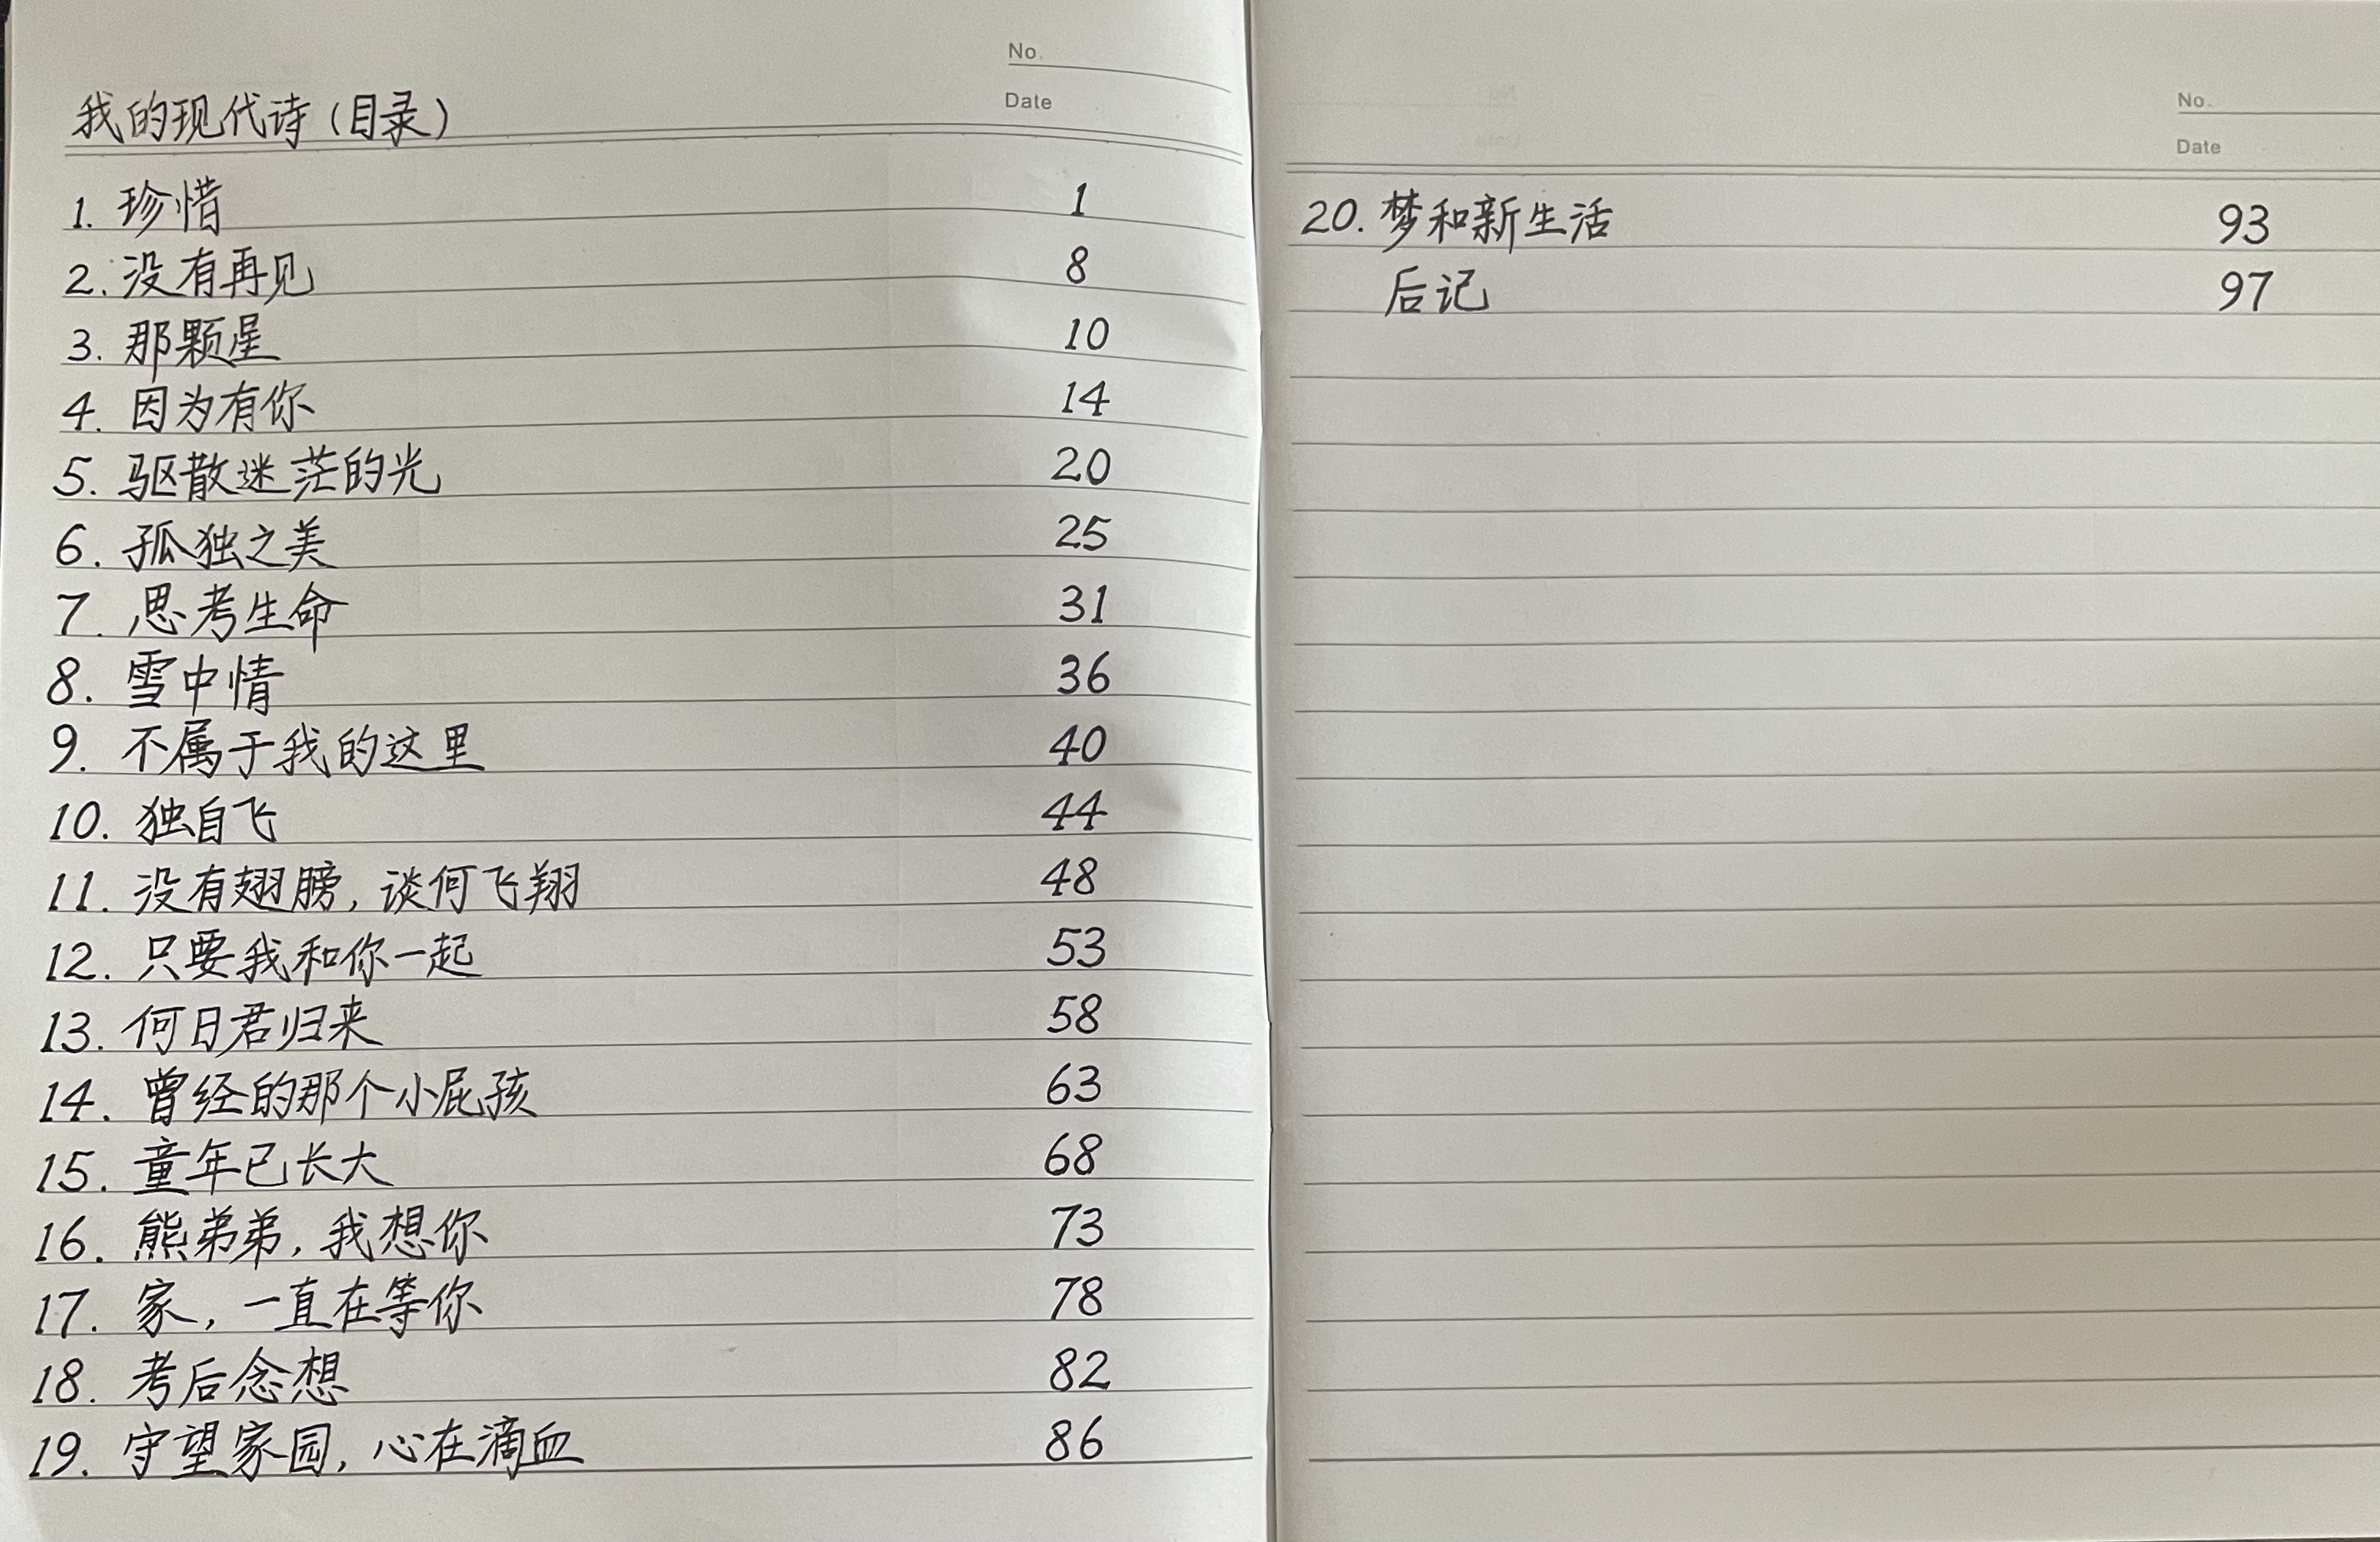 No.
Date
我的现代诗（目录）
1. 珍惜 1
2. 没有再见 8
3. 那颗星 10
4. 因为有你 14
5. 驱散迷茫的光 20
6. 孤独之美 25
7. 思考生命 31
8. 雪中情 36
9. 不属于我的这里 40
10. 独自飞 44
11. 没有翅膀，谈何飞翔 48
12. 只要我和你一起 53
13. 何日君归来 58
14. 曾经的那个小屁孩 63
15. 童年已长大 68
16. 熊弟弟，我想你 73
17. 家，一直在等你 78
18. 考后念想 82
19. 守望家园，心在滴血 86
No.
Date
20. 梦和新生活 93
后记 97